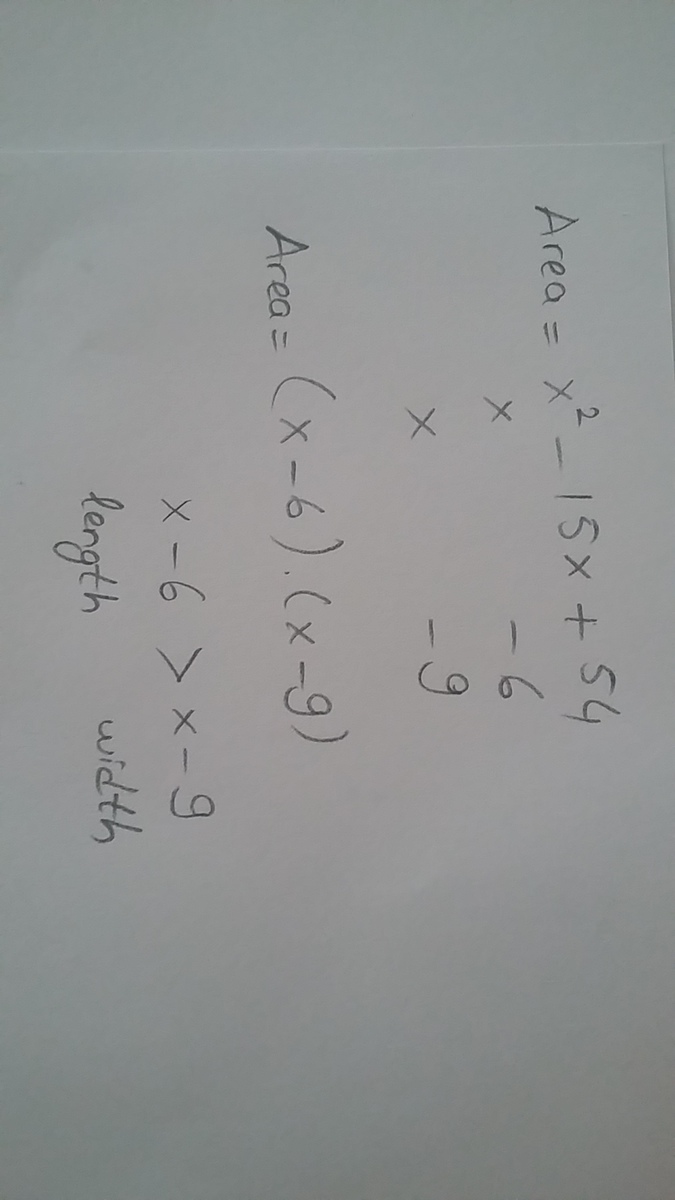 Area = x² - 15x + 54
x -6
x -9
Area = (x - 6) . (x - 9)
x - 6 > x - 9
length width